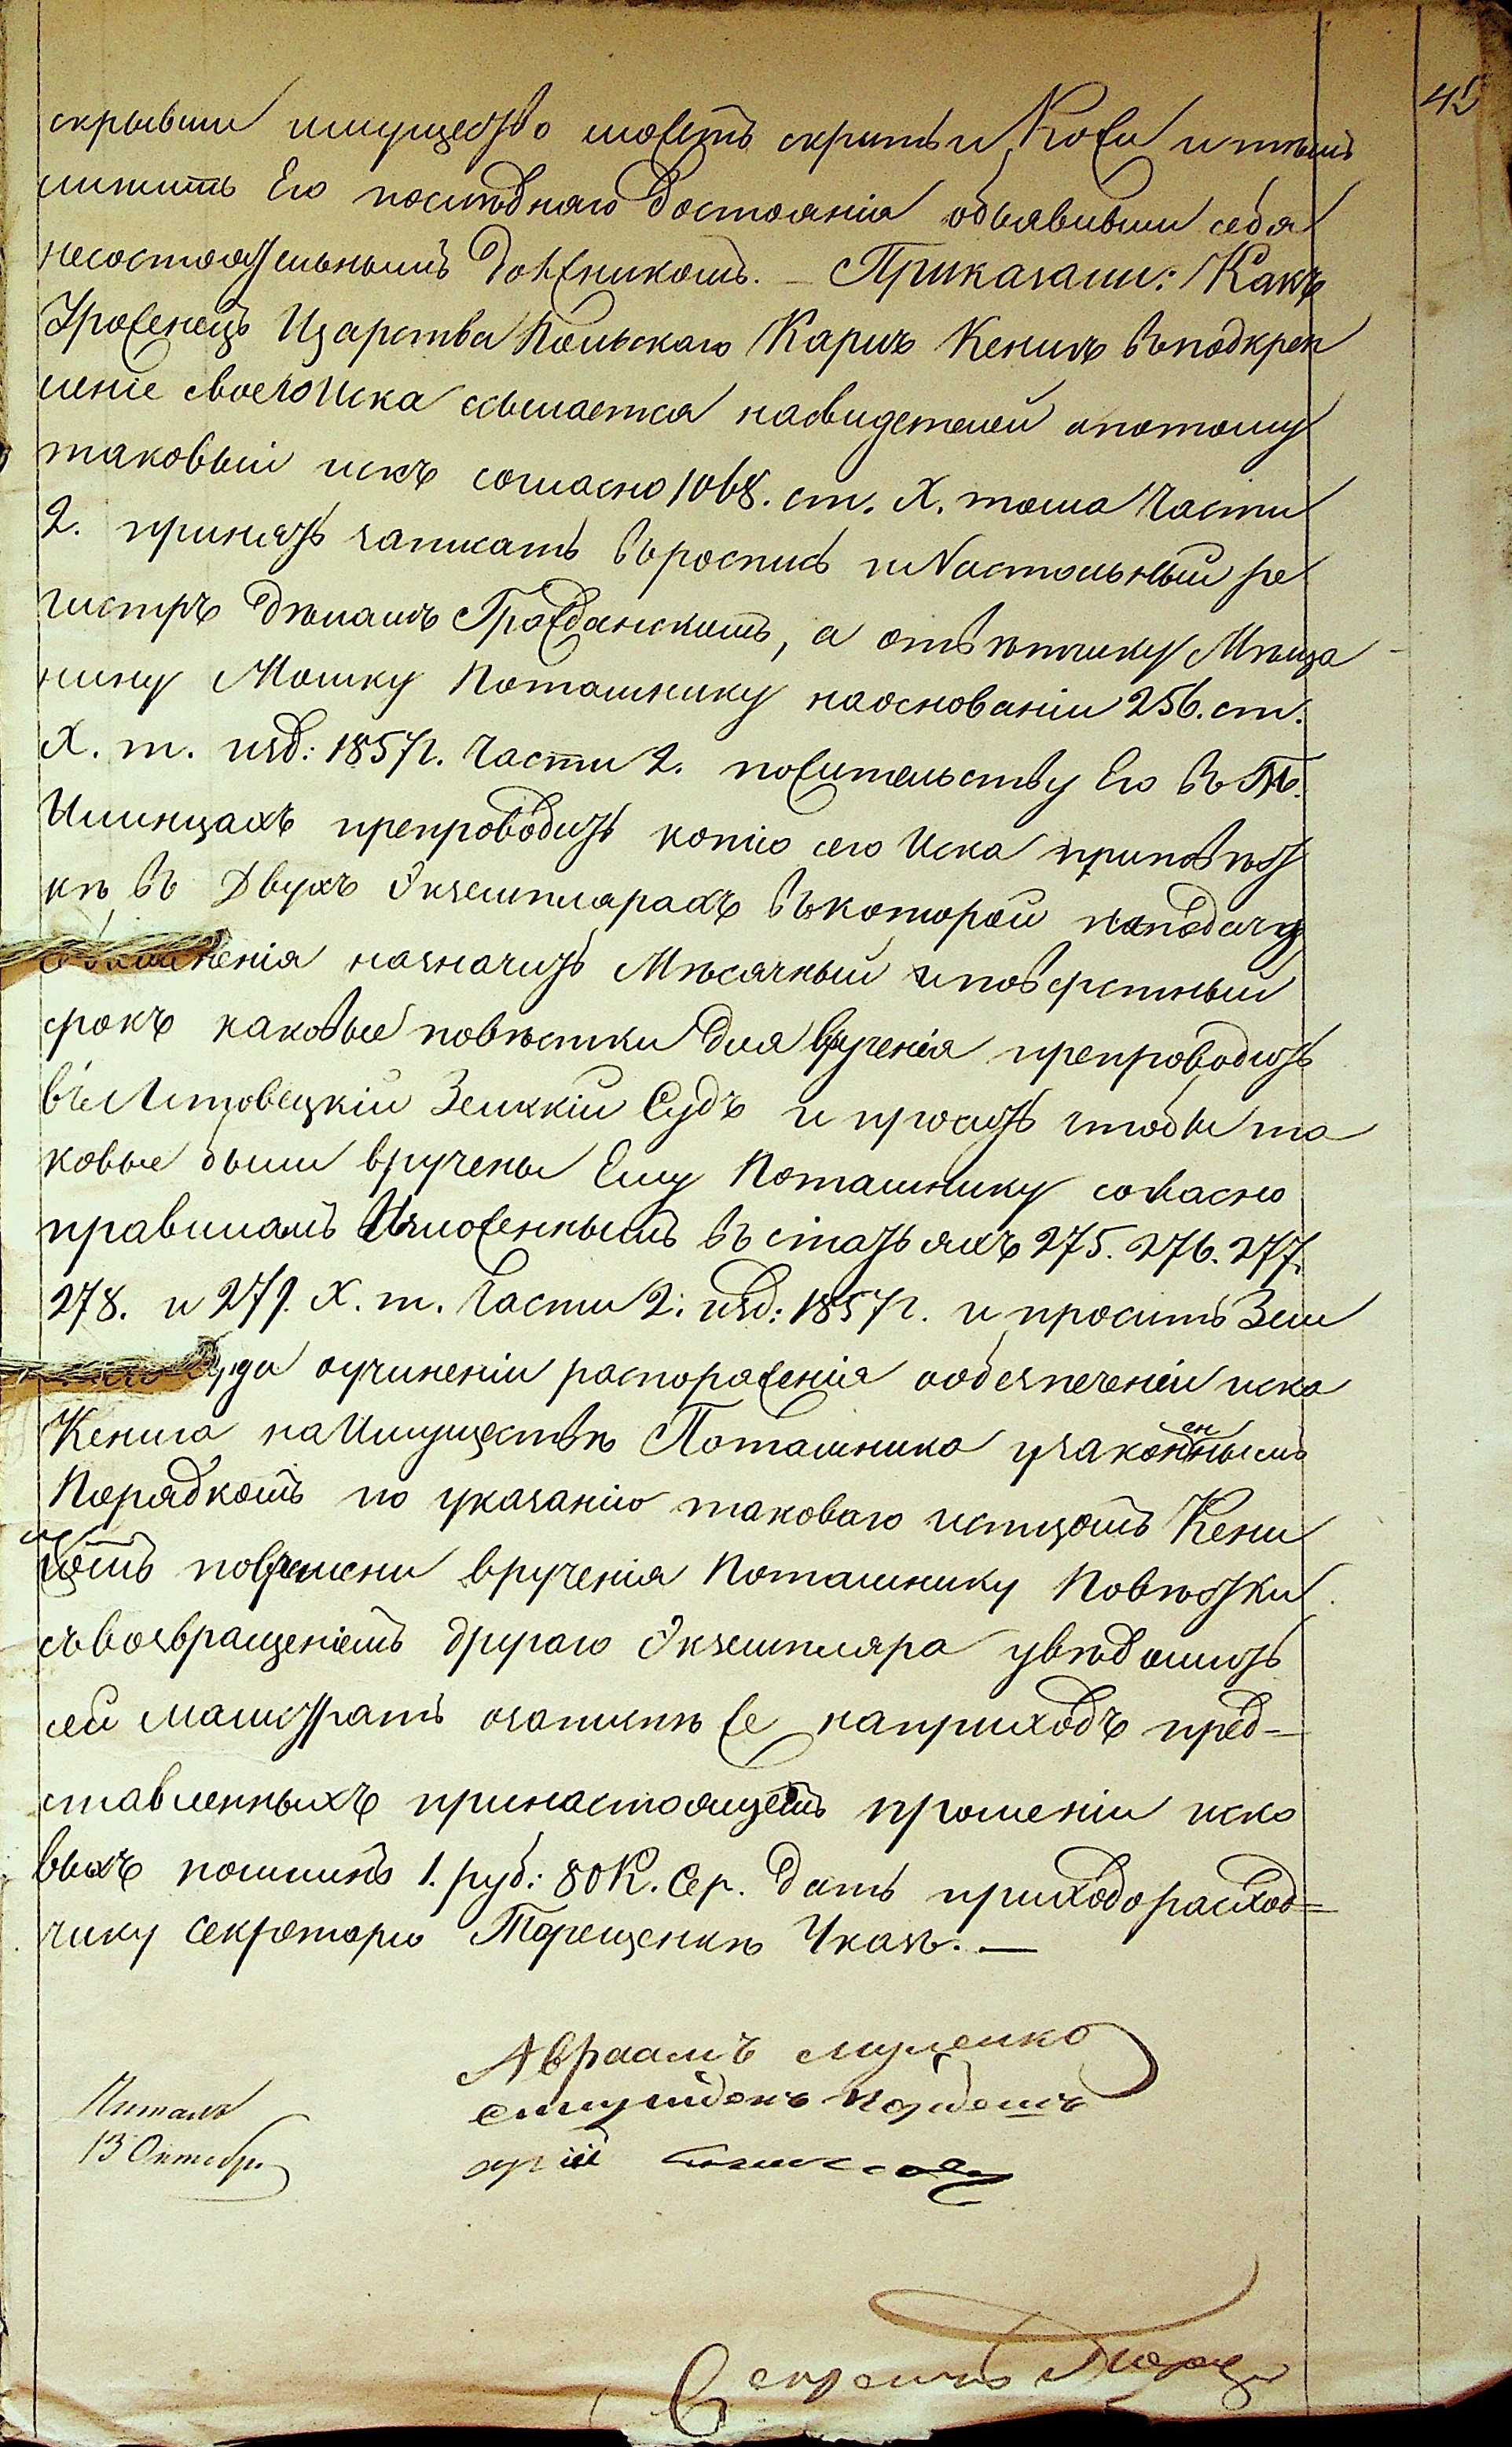 45
скрывши имущество можетъ скрыть и Кожи и тѣмъ
лишить Его послѣдняго Достоянія объявивши себя
несостоятельнымъ Должникомъ. – Приказали: Какъ
Уроженецъ Царства Польскаго Карлъ Кенигъ въ подкреп
леніе своего Иска ссылается на свидетелей а потому
таковый искъ согласно 1068. ст. X. тома Части
2. принять записать въ роспись и Настольный ре
гистръ дѣламъ Гражданскимъ, а отвѣтчику Мѣща
нину Мошку Поташнику на основаніи 256. ст.
X. т. изд: 1857 г. Части 2. по жительству Его въ М.
Илинцахъ препроводить копію сего Иска при повѣст
кѣ въ Двухъ Экземплярахъ въ которой на подачу
объясненія назначить Мѣсячный и поверстный
срокъ каковые повѣстки для врученія препроводить
въ Липовецкій Земскій Судъ и просить чтобы та
ковые были вручены Ему Поташнику согласно
правиламъ Изложеннымъ въ статьяхъ 275. 276. 277.
278. и 279. X. т. Части 2. изд: 1857 г. и просить Зем
суда о учиненіи распораженія о обезпеченіи иска
Кенига на Имуществѣ Поташника узаконеннымъ
Порядкомъ по указанію таковаго истцомъ Кени
гомъ по времени врученія Поташнику Повѣстки
съ возвращеніемъ другаго Экземпляра увѣдомить
сей Магистратъ о записке же на приходъ пред=
ставленныхъ при настоящемъ прошеніи иско
выхъ пошлинъ 1. руб: 80 К. Сер. дать приходорасход=
чику Секретарю Терещенкѣ Указъ. —
Авраамъ
Читалъ
13 Октябр.
Секретарь